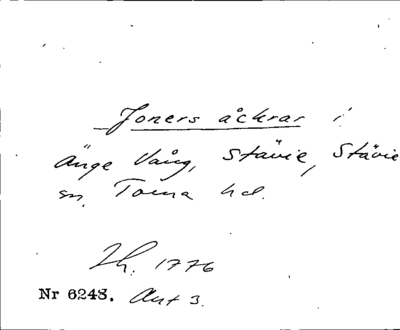 Joners åckrar i
Änge Vång, Stävie, Stävie
sn. Torna hd.
Lh. 1776
Nr 6248. Akt 3.